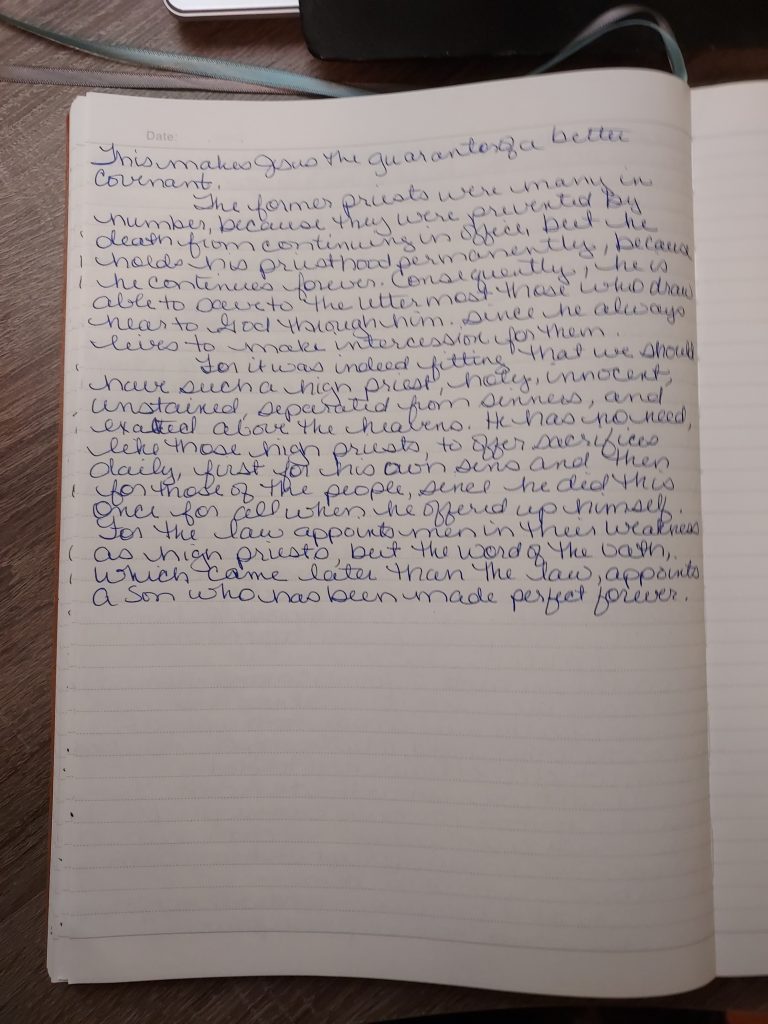 Date:
This makes Jesus the guarantor of a better
covenant.
The former priests were many in
number, because they were prevented by
death from continuing in office, but he
holds his priesthood permanently, because
he continues forever. Consequently, he is
able to save to the uttermost those who draw
near to God through him. since he always
lives to make intercession for them.
For it was indeed fitting that we should
have such a high priest, holy, innocent,
unstained, separated from sinners, and
exalted above the heavens. He has no need,
like those high priests, to offer sacrifices
daily, first for his own sins and then
for those of the people, since he did this
once for all when he offered up himself.
For the law appoints men in their weakness
as high priests, but the word of the oath,
which came later than the law, appoints
a son who has been made perfect forever.